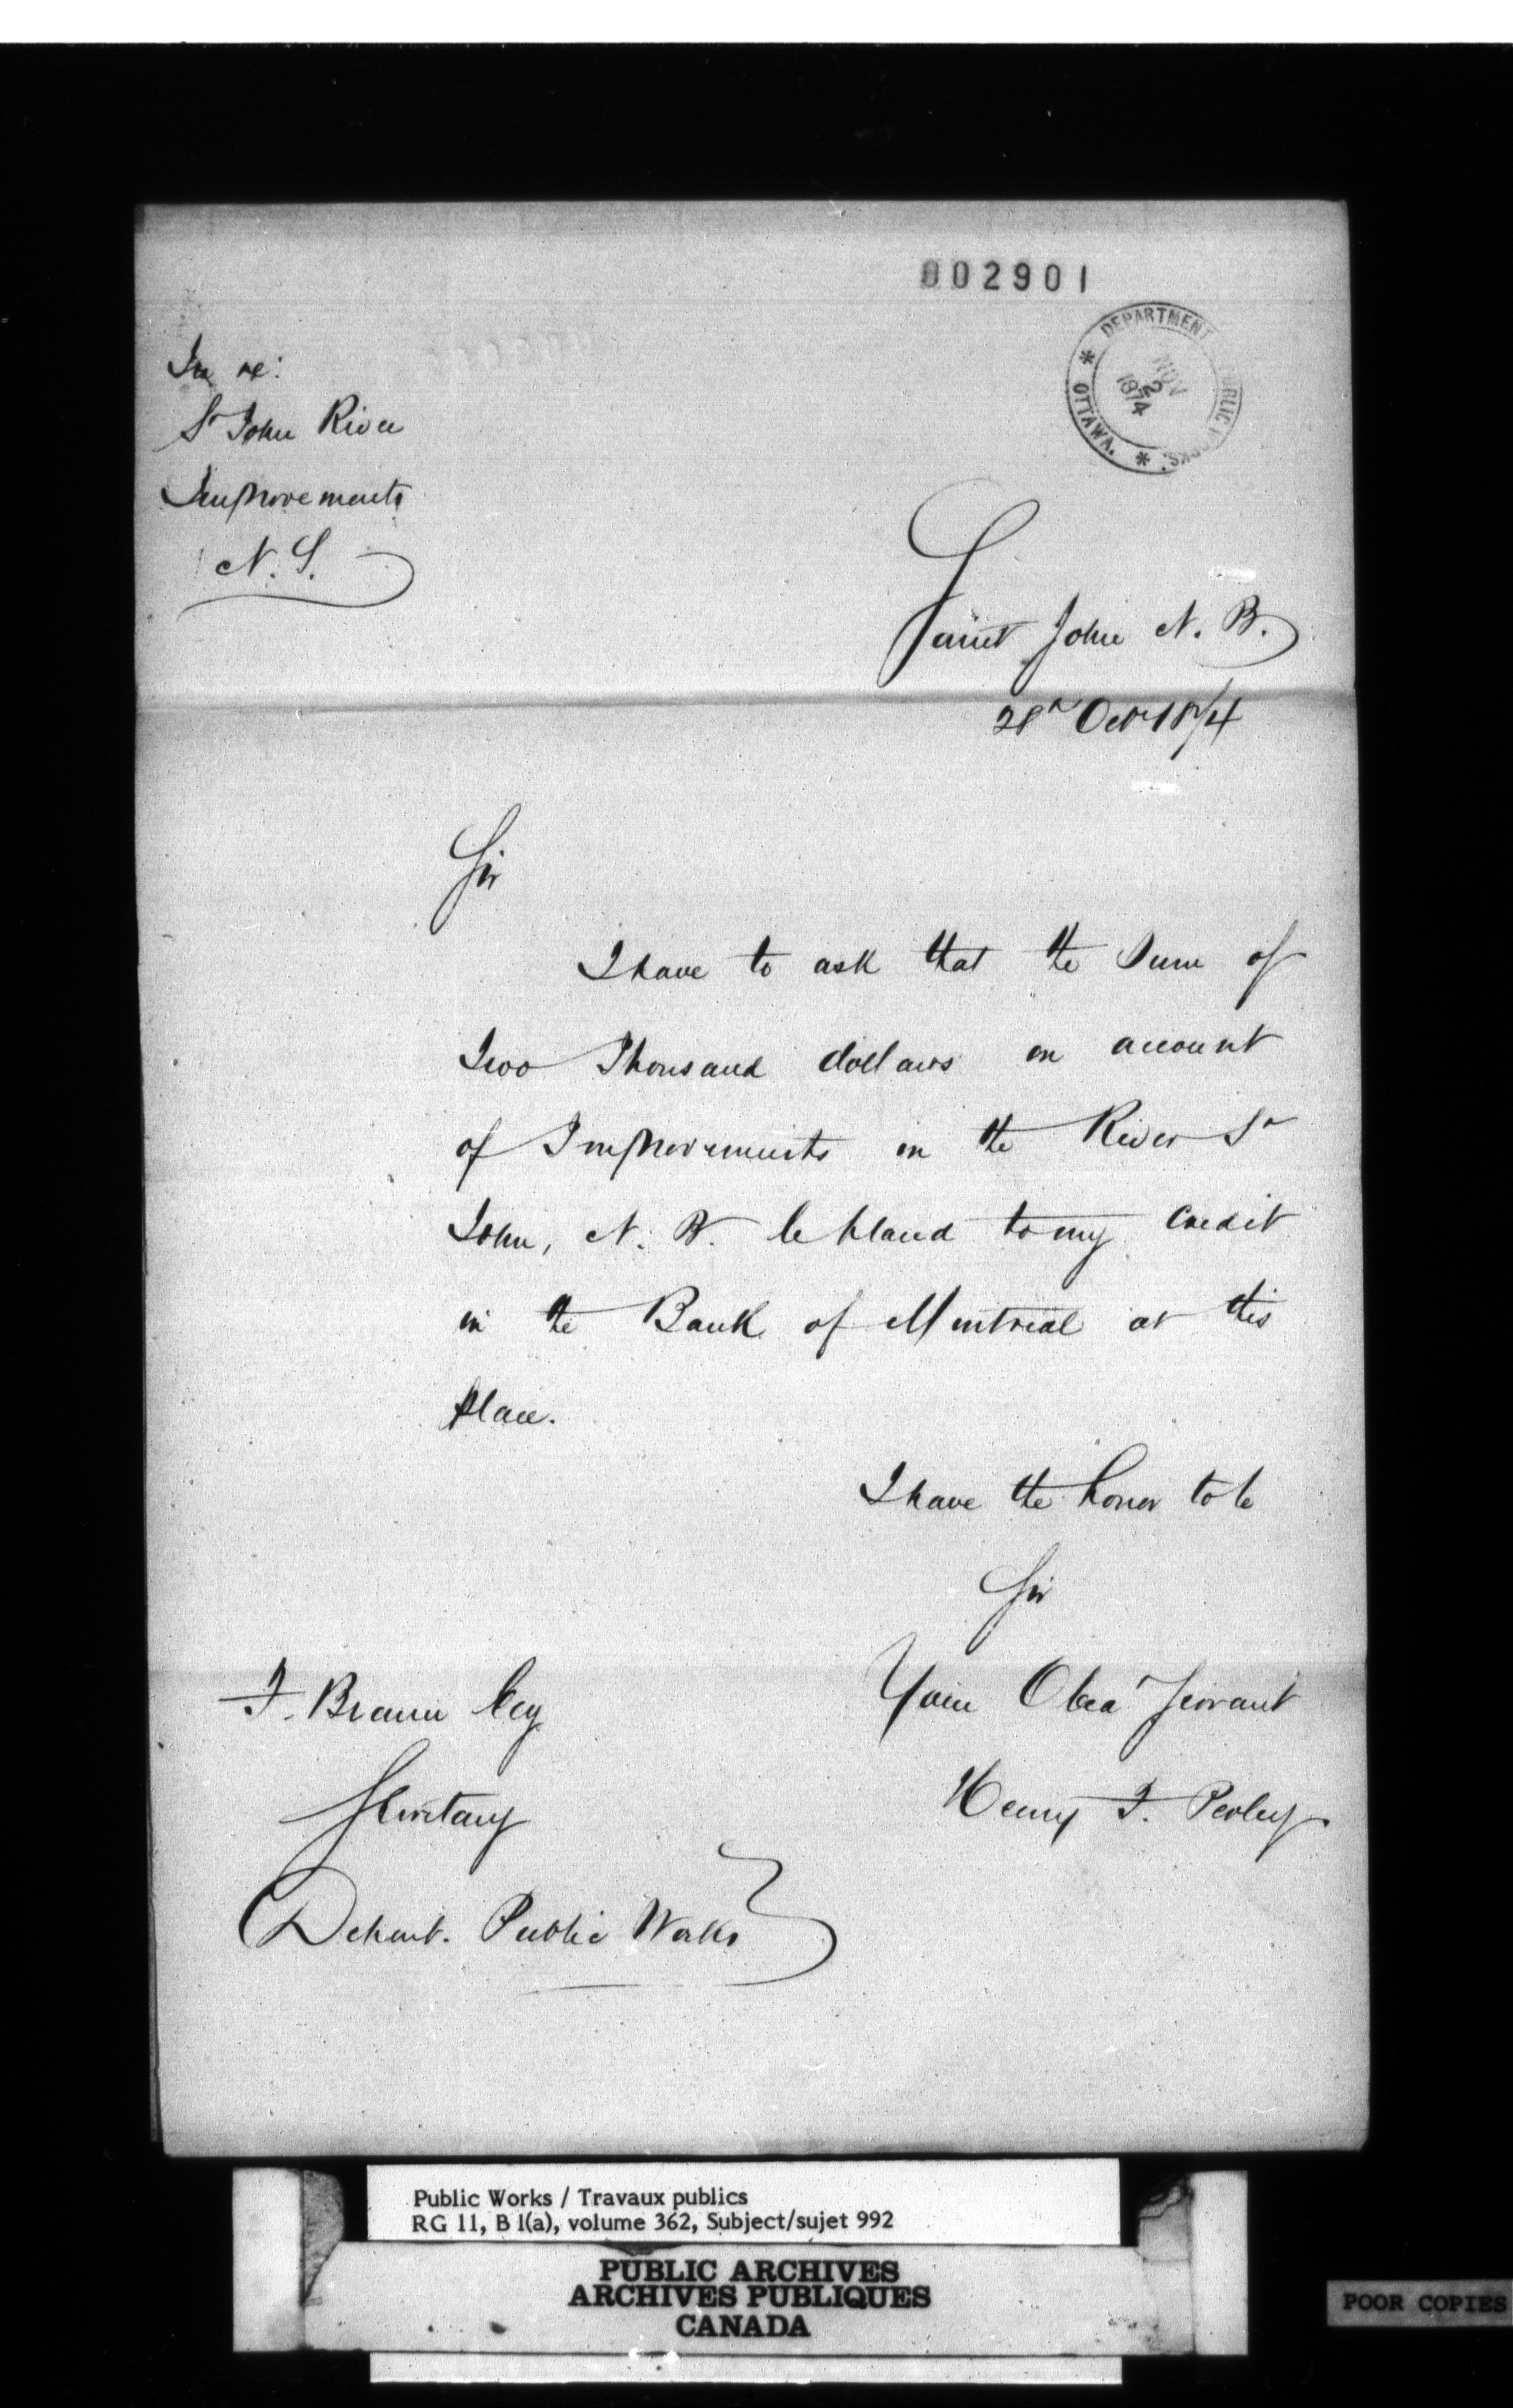 002901
DEPARTMENT PUBLIC WORKS.
* OTTAWA. *
NOV
2
1874
In re:
St John River
Improvements
N. S.
Saint John N. B.
28th Octr 1874
Sir
I have to ask that the Sum of
Two Thousand dollars on account
of Improvements in the River St
John, N. B. be placed to my credit
in the Bank of Montreal at this
place.
I have the honor to be
Sir
Your Obed Servant
Henry F. Perley
F. Braun Esq
Secretary
Depart. Public Works
Public Works / Travaux publics
RG 11, B 1(a), volume 362, Subject/sujet 992
PUBLIC ARCHIVES
ARCHIVES PUBLIQUES
CANADA
POOR COPIES